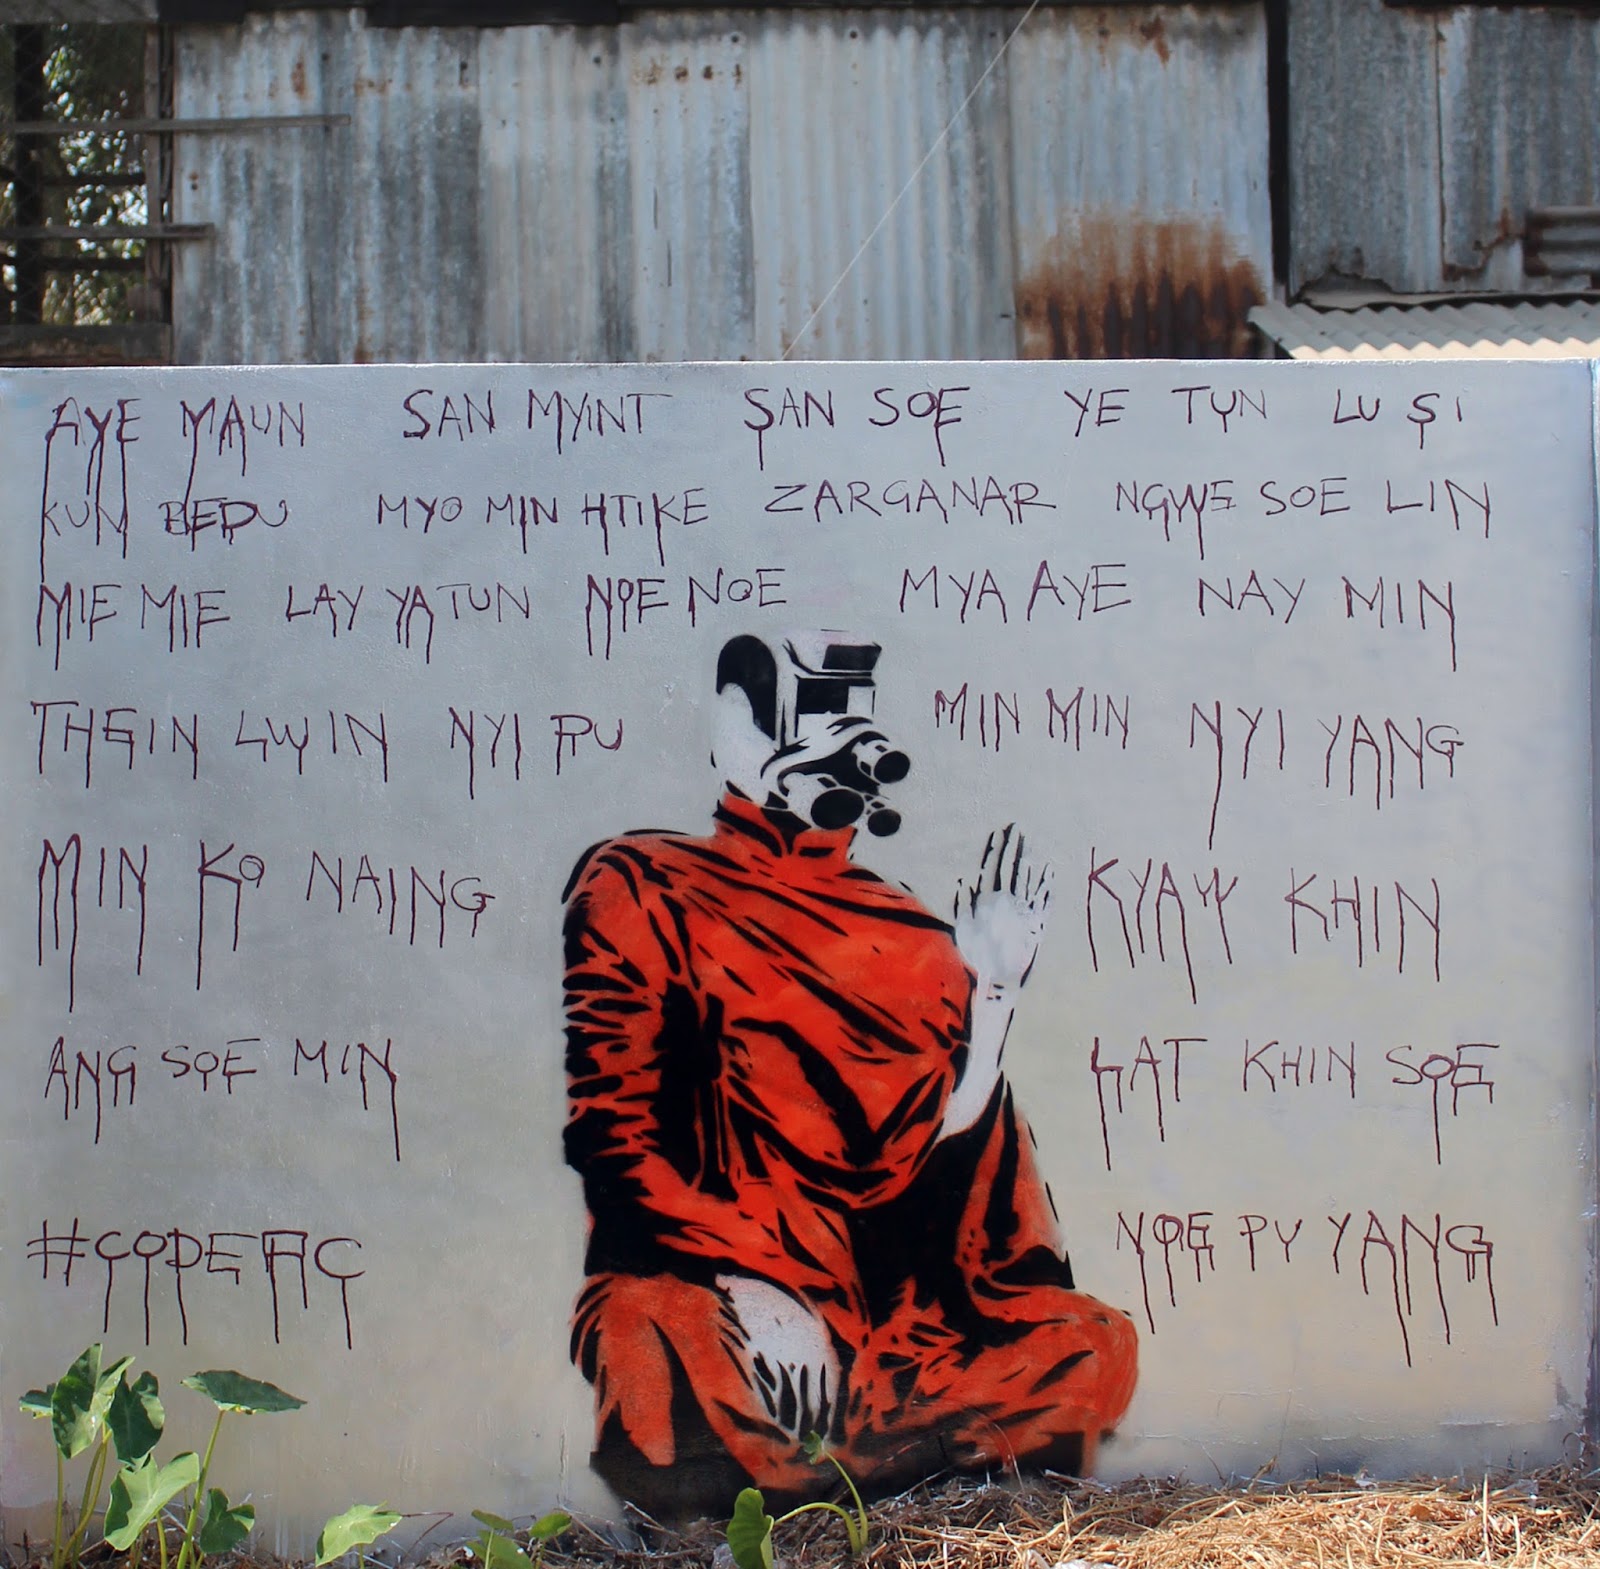 AYE MAUN SAN MYINT SAN SOE YE TUN LU SI
KUN BEDU MYO MIN HTIKE ZARGANAR NGWE SOE LIN
MIE MIE LAY YATUN NOE NOE MYA AYE NAY MIN
THEIN LWIN NYI PU MIN MIN NYI YANG
MIN KO NAING KYAW KHIN
ANG SOE MIN LAT KHIN SOE
#CODEFC NOE PU YANG